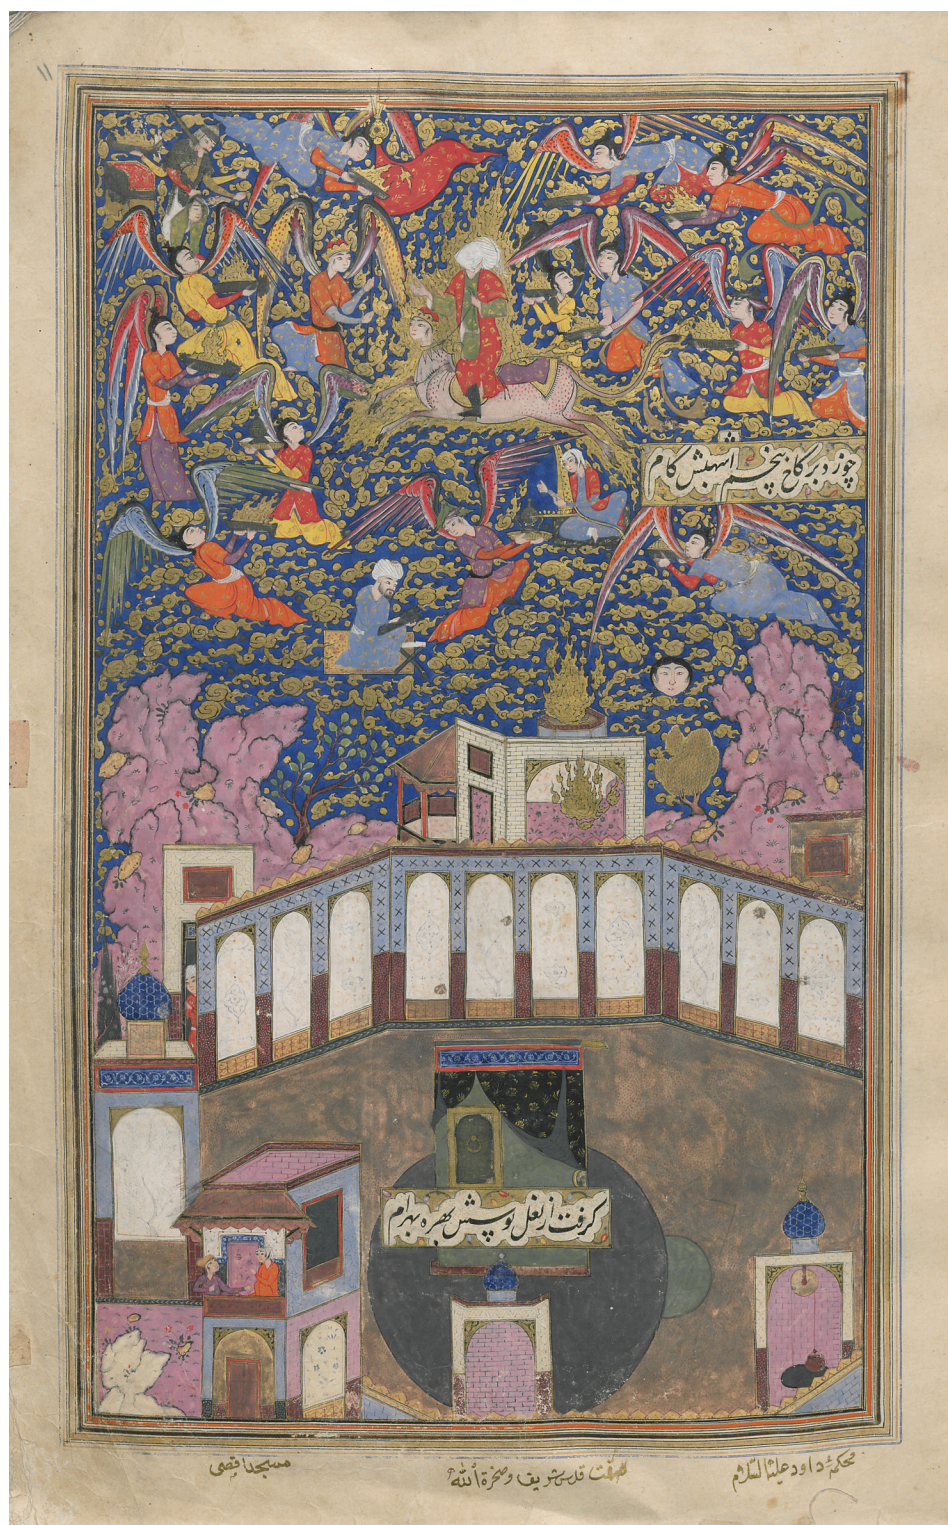 ۱۱
چو زد بر کاخ پنجم اشهبش کام
کرفت از نعل بوسش بهره بهرام
محکمهٔ داود علیه السلام
صفت قدس شریف و صخرة الله
مسجد اقصی